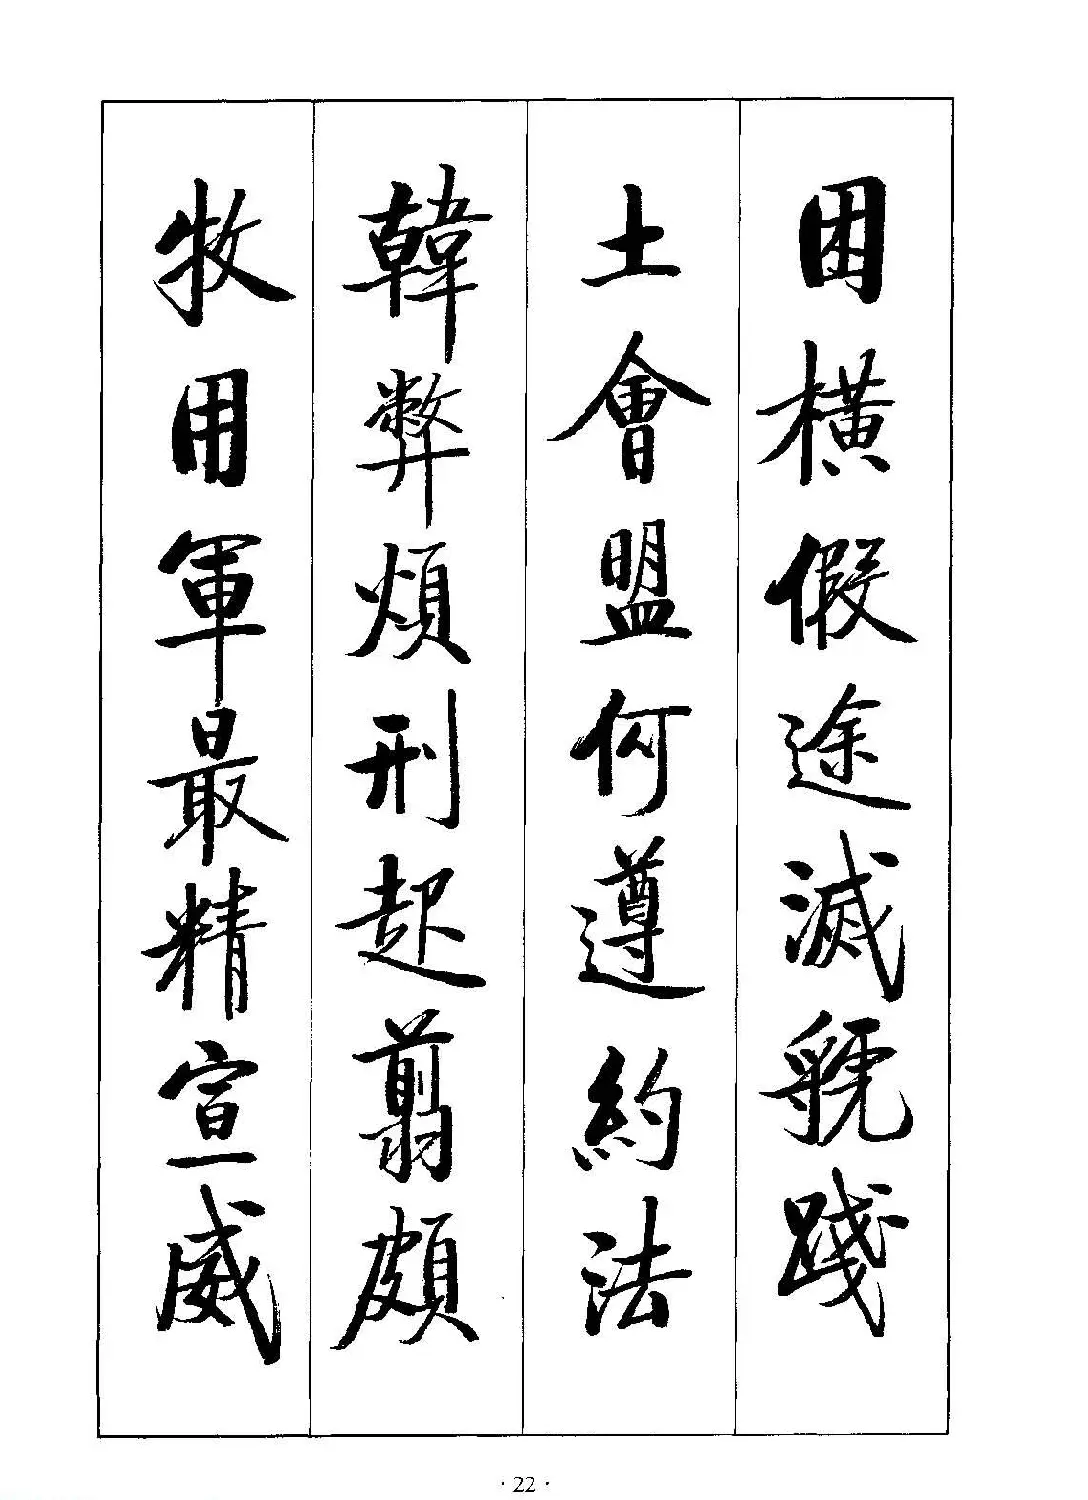 困橫假途滅虢踐
土會盟何遵約法
韓弊煩刑起翦頗
牧用軍最精宣威
· 22 ·